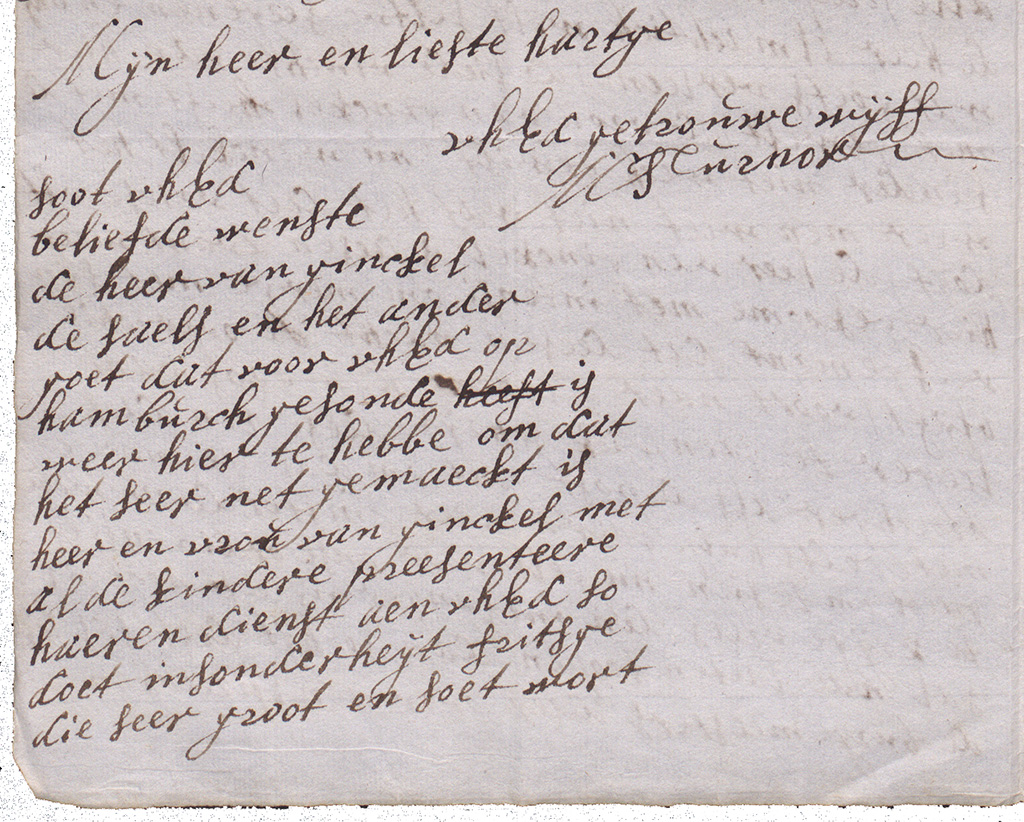 Mijn heer en liefste hartge
uhEd getrouwe wijff
M Turnor
soot uhEd
beliefde wenste
de heer van ginckel
de saels en het ander
goet dat voor uhEd op
hamburch gesonde heeft is
weer hier te hebbe om dat
het seer net gemaeckt is
heer en vrou van ginckel met
al de kindere preesenteere
haeren dienst aen uhEd so
doet insonderheijt fritsge
die seer groot en soet wort